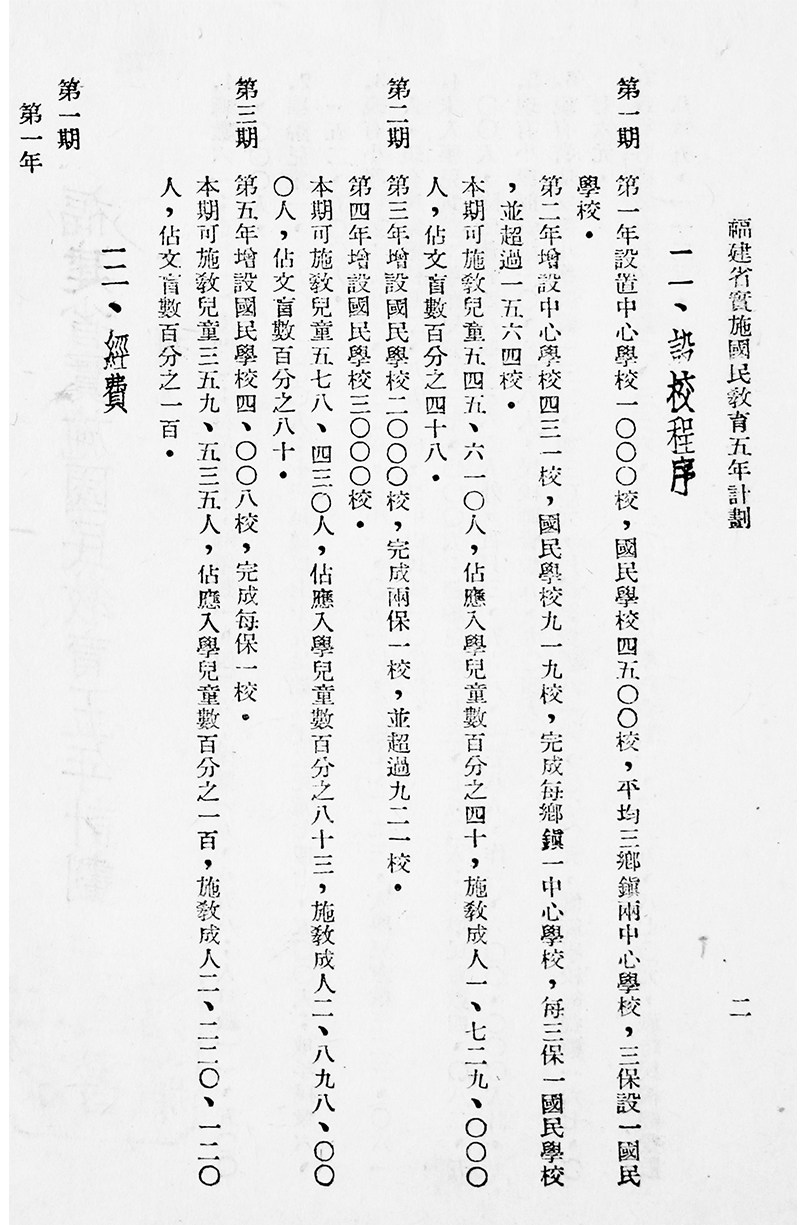 福建省實施國民敎育五年計劃
二
二、設校程序
第一期　第一年設置中心學校一〇〇〇校，國民學校四五〇〇校，平均三鄉鎭兩中心學校，三保設一國民
學校．
第二年增設中心學校四三一校，國民學校九一九校，完成每鄉鎭一中心學校，每三保一國民學校
，並超過一五六四校．
本期可施敎兒童五四五、六一〇人，佔應入學兒童數百分之四十，施敎成人一、七二九、〇〇〇
人，佔文盲數百分之四十八．
第二期　第三年增設國民學校二〇〇〇校，完成兩保一校，並超過九二一校．
第四年增設國民學校三〇〇〇校．
本期可施敎兒童五七八、四三〇人，佔應入學兒童數百分之八十三，施敎成人二、八九八、〇〇
〇人，佔文盲數百分之八十．
第三期　第五年增設國民學校四、〇〇八校，完成每保一校。
本期可施敎兒童三五九、五三五人，佔應入學兒童數百分之一百，施敎成人二、二二〇、一二〇
人，佔文盲數百分之一百．
三、經費
第一期
第一年